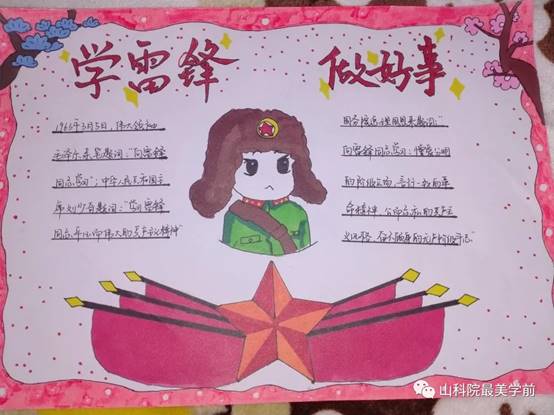 学雷锋 做好事
1963年3月5日，伟大领袖
毛泽东亲笔题词："向雷锋
同志学习"；中华人民共和国主
席刘少奇题词："学习雷锋
同志平凡而伟大的共产主义精神"
国务院总理周恩来题词："
向雷锋同志学习：憎爱分明
的阶级立场、言行一致的革
命精神、公而忘私的共产主
义风格、奋不顾身的无产阶级斗志"
山科院最美学前